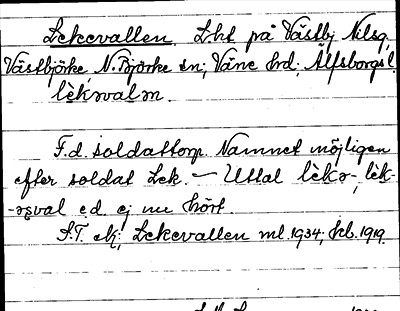 Lekevallen. L.ht på Västby Nilsg,
Västbjörke, N. Björke sn; Väne hd; Älfsborgs l.
lèkəvalən.
F.d. soldattorp. Namnet möjligen
efter soldat Lek. — Uttal lèkə-, lèk-
-əsval e.d. ej nu hört.
S.T. ek; Lekevallen ml. 1934; hd. 1919.